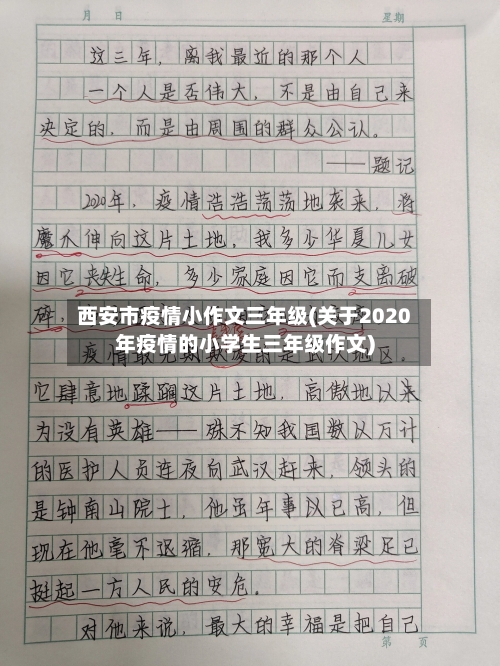 月 日 星期
这三年，离我最近的那个人
一个人是否伟大，不是由自己来
决定的，而是由周围的群众公认。
——题记
2020年，疫情浩浩荡荡地袭来，将
魔爪伸向这片土地，我多少华夏儿女
因它丧失生命，多少家庭因它而支离破
碎，
西安市疫情小作文三年级(关于2020
年疫情的小学生三年级作文)
疫情最
地区。
它肆意地蹂躏这片土地，高傲地以来
为没有英雄——殊不知我国数以万计
的医护人员连夜向武汉赶来，领头的
是钟南山院士，他虽年事以已高，但
现在他毫不退缩，那宽大的脊梁足已
挺起一方人民的安危。
对他来说，最大的幸福是把自己
第 页